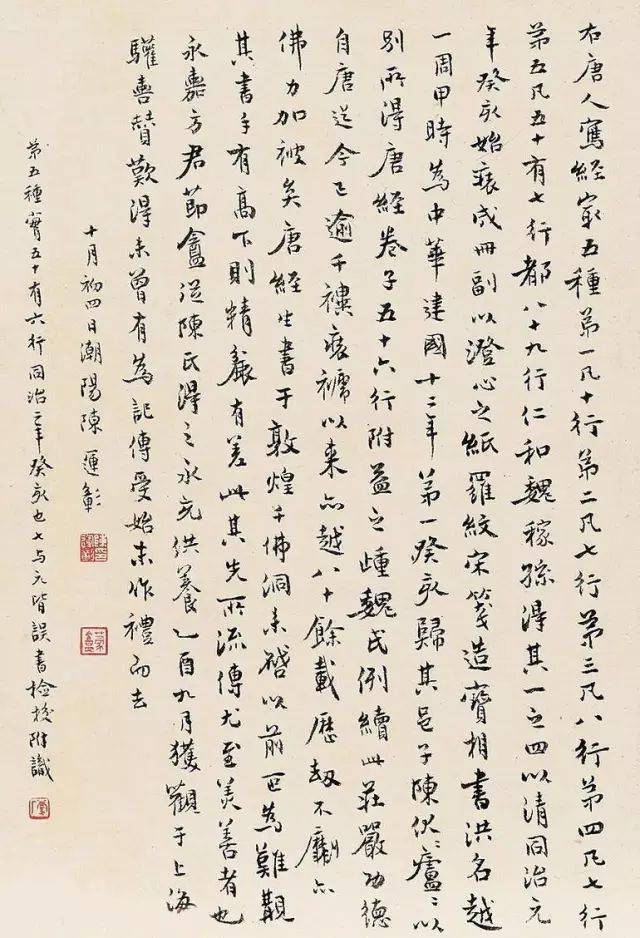 右唐人寫經寂五種第一凡十行第二凡七行第三凡八行第四凡七行
第五凡五十有七行都八十九行仁和魏稼孫得其一之四以清同治元
年癸亥始裝成冊副以澄心之紙羅紋宋箋造寶相書洪名越
一周甲時為中華建國十二年第一癸亥歸其邑子陳伏廬廬以
別所得唐經卷子五十六行附益之踵魏氏例續此莊嚴功德
自唐迄今已逾千禩裝褫以來亦越八十餘載歷劫不劘亦
佛力加被矣唐經生書于敦煌千佛洞未啓以前叵為難覯
其書手有高下則精麤有差此其先所流傳尤至美善者也
永嘉方君節盦從陳氏得之永充供養乙酉九月獲觀于上海
驩喜贊歎得未曾有為記傳受始末作禮而去
十月初四日潮陽陳運彰
第五種實五十有六行同治二年癸亥也七与元皆誤書檢校附識